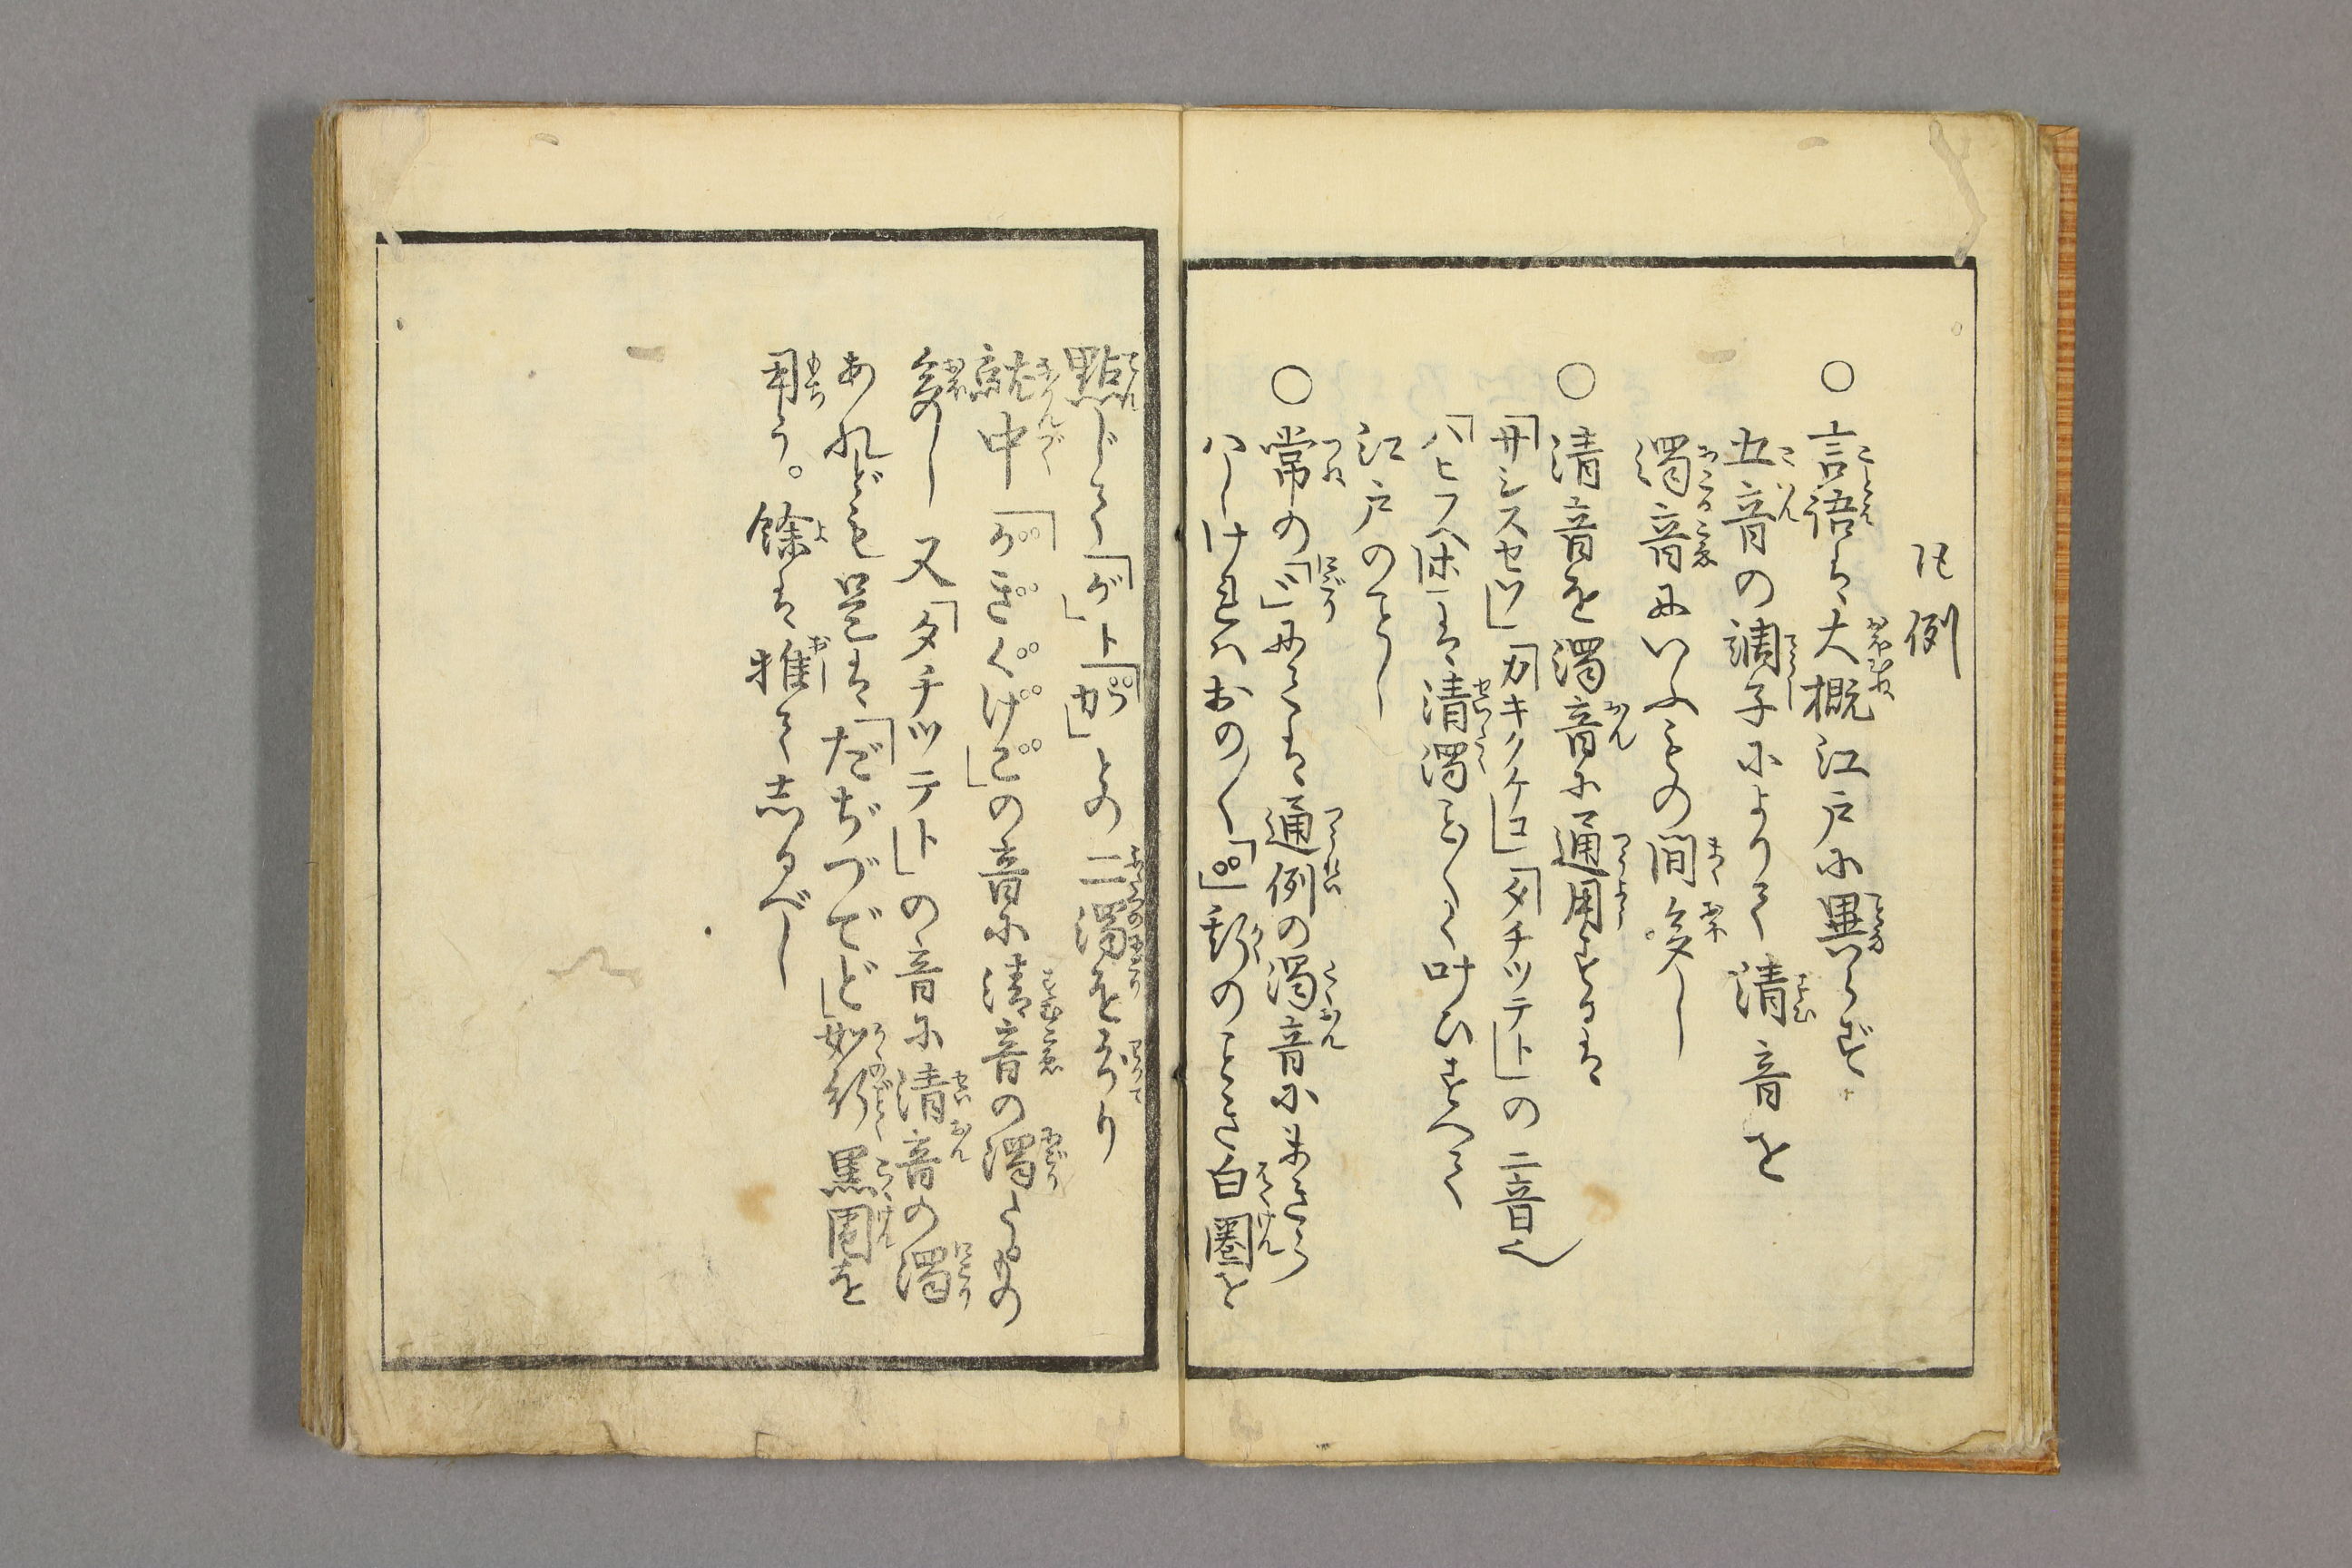 凡例
○言語は大概江戸に異らず
五音の調子によりて清音を
濁音にいふもの間多し
○清音を濁音に通用するは
「サシスセソ」「カキクケコ」「タチツテト」の二音也
「ハヒフヘホ」は清濁ことごとく叶ひすべて
江戸のごとし
○常の「〃」にては通例の濁音に
はしければおのおの「°°」形のごとき白圏を
點じて「ガ」ト「カ°°」との二濁をわかり
就中「か°°き°°く°°け°°こ°°」の音に清音の濁たるもの
多し 又「タチツテト」の音に清音の濁
あれども是は「だぢづでど」如斯黒圏を
用う。餘は推て志るべし